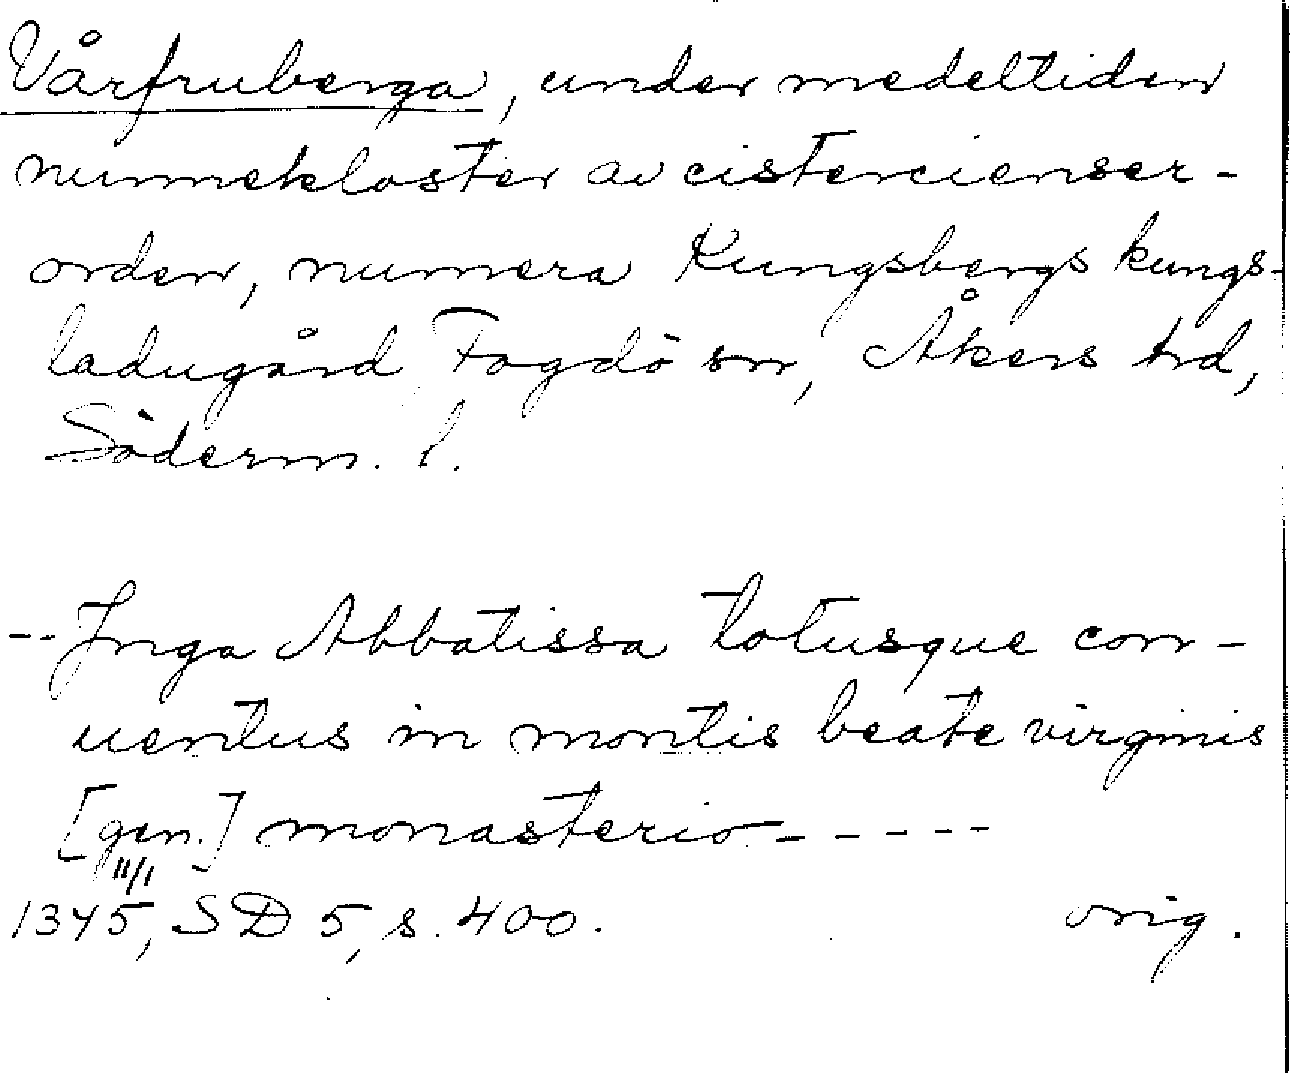 Vårfruberga, under medeltiden
nunnekloster av cistercienser-
orden, numera Kungsbergs kungs-
ladugård, Fogdö sn, Åkers hd,
Söderm. l.
-- Jnga Abbatissa totusque con-
uentus in montis beate virginis
[gen.] monasterio - - - - -
11/1
1345, SD 5, s. 400. orig.